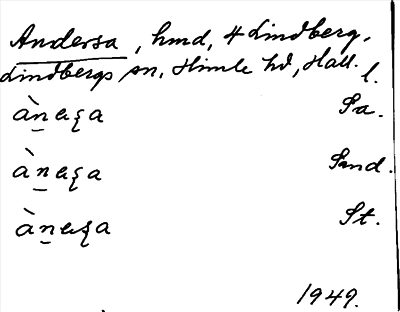 Andersa, hmd, 4 Lindberg,
Lindbergs sn, Himle hd, Hall. l.
àṉaʂa Sa.
àṉaʂa Smd.
àṉaʂa St.
1949.